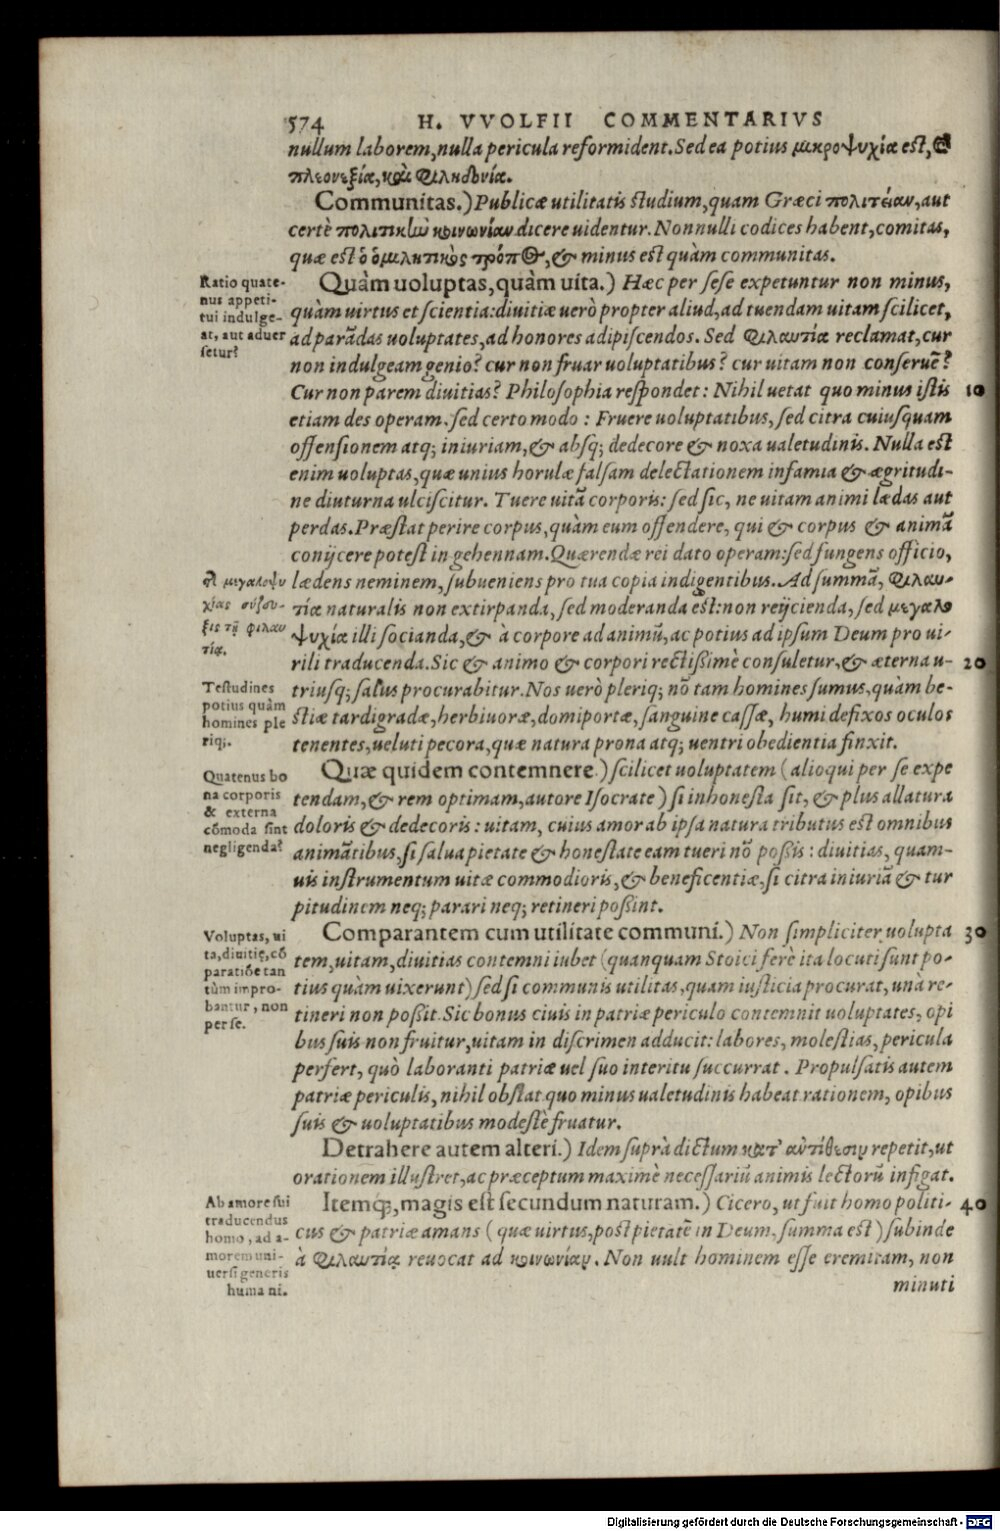 574 H. VVOLFII COMMENTARIVS
nullum laborem, nulla pericula reformident. Sed ea potius μικροψυχία est, &
πλεονεξία, καὶ φιληδονία.
Communitas.) Publicæ utilitatis studium, quam Græci πολιτείαν, aut
certè πολιτικὴν κοινωνίαν dicere uidentur. Nonnulli codices habent, comitas,
quæ est ὁ ὁμιλητικὸς τρόπος, & minus est quàm communitas.
Ratio quate-
nus appeti-
tui indulge-
at, aut aduer
setur?
Quàm uoluptas, quàm uita.) Hæc per sese expetuntur non minus,
quàm uirtus et scientia: diuitiæ uerò propter aliud, ad tuendam uitam scilicet,
ad parādas uoluptates, ad honores adipiscendos. Sed φιλαυτία reclamat, cur
non indulgeam genio? cur non fruar uoluptatibus? cur uitam non conseruē?
Cur non parem diuitias? Philosophia respondet: Nihil uetat quo minus istis 10
etiam des operam, sed certo modo: Fruere uoluptatibus, sed citra cuiusquam
offensionem atq; iniuriam, & absq; dedecore & noxa ualetudinis. Nulla est
enim uoluptas, quæ unius horulæ falsam delectationem infamia & ægritudi-
ne diuturna ulciscitur. Tuere uitā corporis: sed sic, ne uitam animi lædas aut
perdas. Præstat perire corpus, quàm eum offendere, qui & corpus & animā
conijcere potest in gehennam. Quærendæ rei dato operam: sed fungens officio,
μεγαλοψυ
χίας σύζευ-
ξις τῇ φιλαυ
τίᾳ.
lædens neminem, subueniens pro tua copia indigentibus. Ad summā, φιλαυ-
τία naturalis non extirpanda, sed moderanda est: non reijcienda, sed μεγαλο
ψυχία illi socianda, & à corpore ad animū, ac potius ad ipsum Deum pro ui-
rili traducenda. Sic & animo & corpori rectißimè consuletur, & æterna u- 20
Testudines
potius quàm
homines ple
riq;.
triusq; salus procurabitur. Nos uerò pleriq; nō tam homines sumus, quàm be-
stiæ tardigradæ, herbiuoræ, domiportæ, sanguine cassæ, humi defixos oculos
tenentes, ueluti pecora, quæ natura prona atq; uentri obedientia finxit.
Quatenus bo
na corporis
& externa
cōmoda sint
negligenda?
Quæ quidem contemnere.) scilicet uoluptatem (alioqui per se expe
tendam, & rem optimam, autore Isocrate) si inhonesta sit, & plus allatura
doloris & dedecoris: uitam, cuius amor ab ipsa natura tributus est omnibus
animātibus, si salua pietate & honestate eam tueri nō poßis: diuitias, quam-
uis instrumentum uitæ commodioris, & beneficentiæ, si citra iniuriā & tur
pitudinem neq; parari neq; retineri poßint.
Voluptas, ui
ta, diuitię, cō
paratiōe tan
tùm impro-
bantur, non
per se.
Comparantem cum utilitate communi.) Non simpliciter uolupta 30
tem, uitam, diuitias contemni iubet (quanquam Stoici ferè ita locuti sunt po-
tius quàm uixerunt) sed si communis utilitas, quam iusticia procurat, unà re-
tineri non poßit. Sic bonus ciuis in patriæ periculo contemnit uoluptates, opi
bus suis non fruitur, uitam in discrimen adducit: labores, molestias, pericula
perfert, quò laboranti patriæ uel suo interitu succurrat. Propulsatis autem
patriæ periculis, nihil obstat quo minus ualetudinis habeat rationem, opibus
suis & uoluptatibus modestè fruatur.
Detrahere autem alteri.) Idem suprà dictum κατ' ἀντίθεσιν repetit, ut
orationem illustret, ac præceptum maximè necessariū animis lectorū infigat.
Ab amore sui
traducendus
homo, ad a-
morem uni-
uersi generis
huma ni.
Itemq́;, magis est secundum naturam.) Cicero, ut fuit homo politi- 40
cus & patriæ amans (quæ uirtus, post pietatē in Deum, summa est) subinde
à φιλαυτίᾳ reuocat ad κοινωνίαν. Non uult hominem esse eremitam, non
minuti
Digitalisierung gefördert durch die Deutsche Forschungsgemeinschaft - DFG